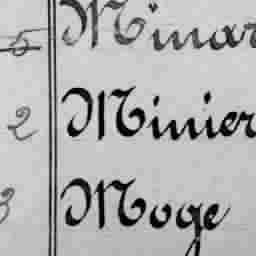 5 Minar
2 Minier
3 Moge